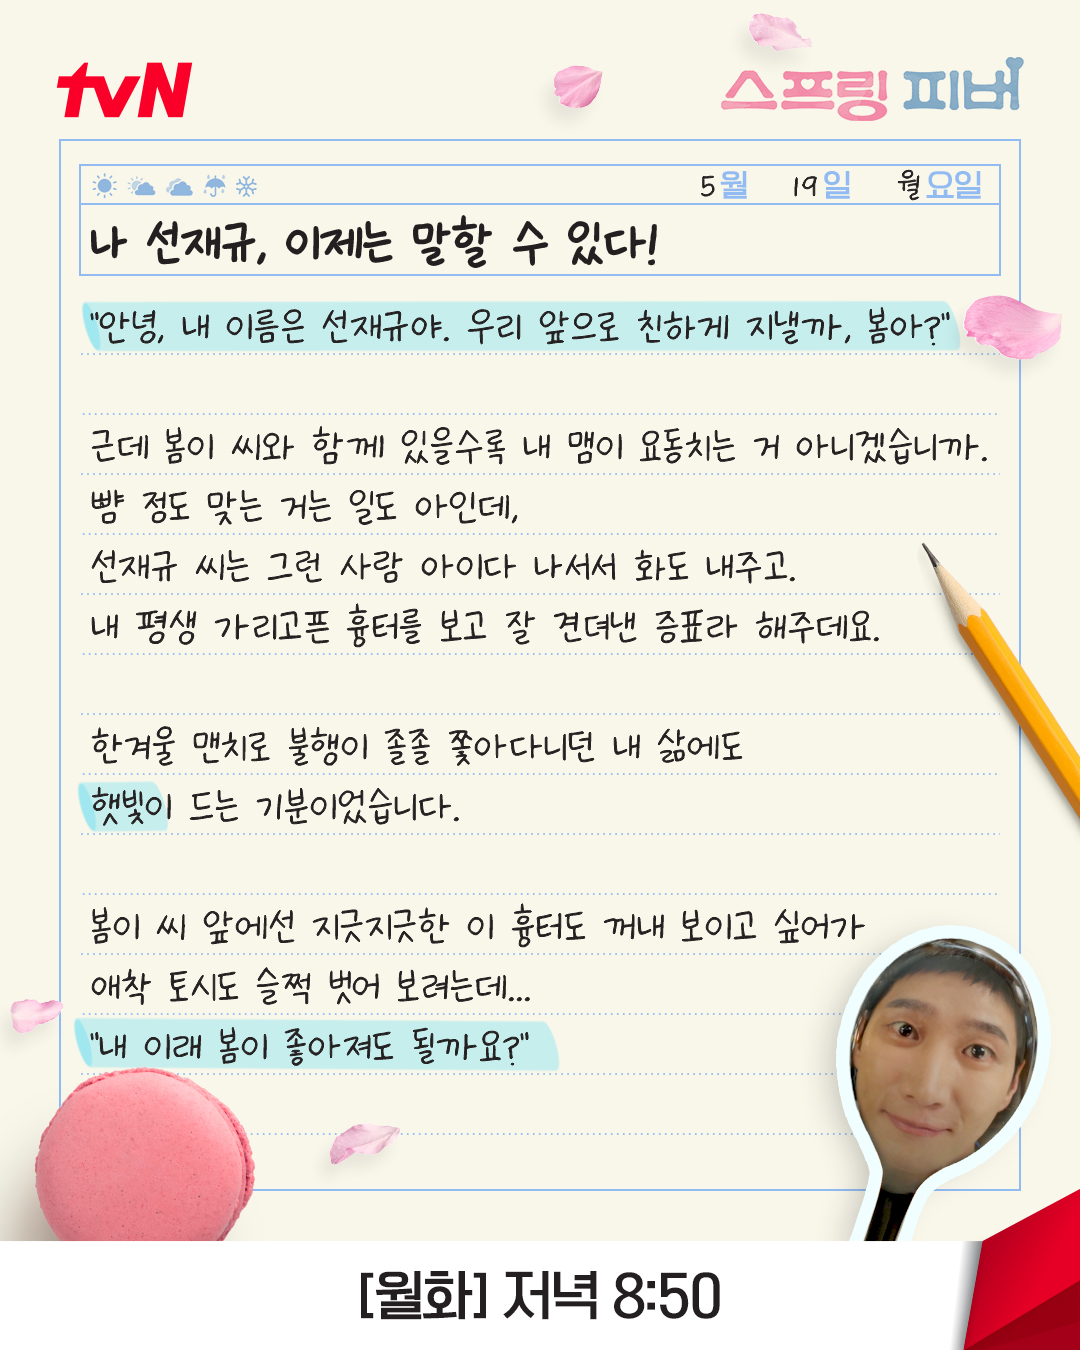 tvN
스프링 피버
5월 19일 월요일
나 선재규, 이제는 말할 수 있다!
"안녕, 내 이름은 선재규야. 우리 앞으로 친하게 지낼까, 봄아?"
근데 봄이 씨와 함께 있을수록 내 맴이 요동치는 거 아니겠습니까.
뺨 정도 맞는 거는 일도 아인데,
선재규 씨는 그런 사람 아이다 나서서 화도 내주고.
내 평생 가리고픈 흉터를 보고 잘 견뎌낸 증표라 해주데요.
한겨울 맨치로 불행이 졸졸 쫓아다니던 내 삶에도
햇빛이 드는 기분이었습니다.
봄이 씨 앞에선 지긋지긋한 이 흉터도 꺼내 보이고 싶어가
애착 토시도 슬쩍 벗어 보려는데...
"내 이래 봄이 좋아져도 될까요?"
[월화] 저녁 8:50